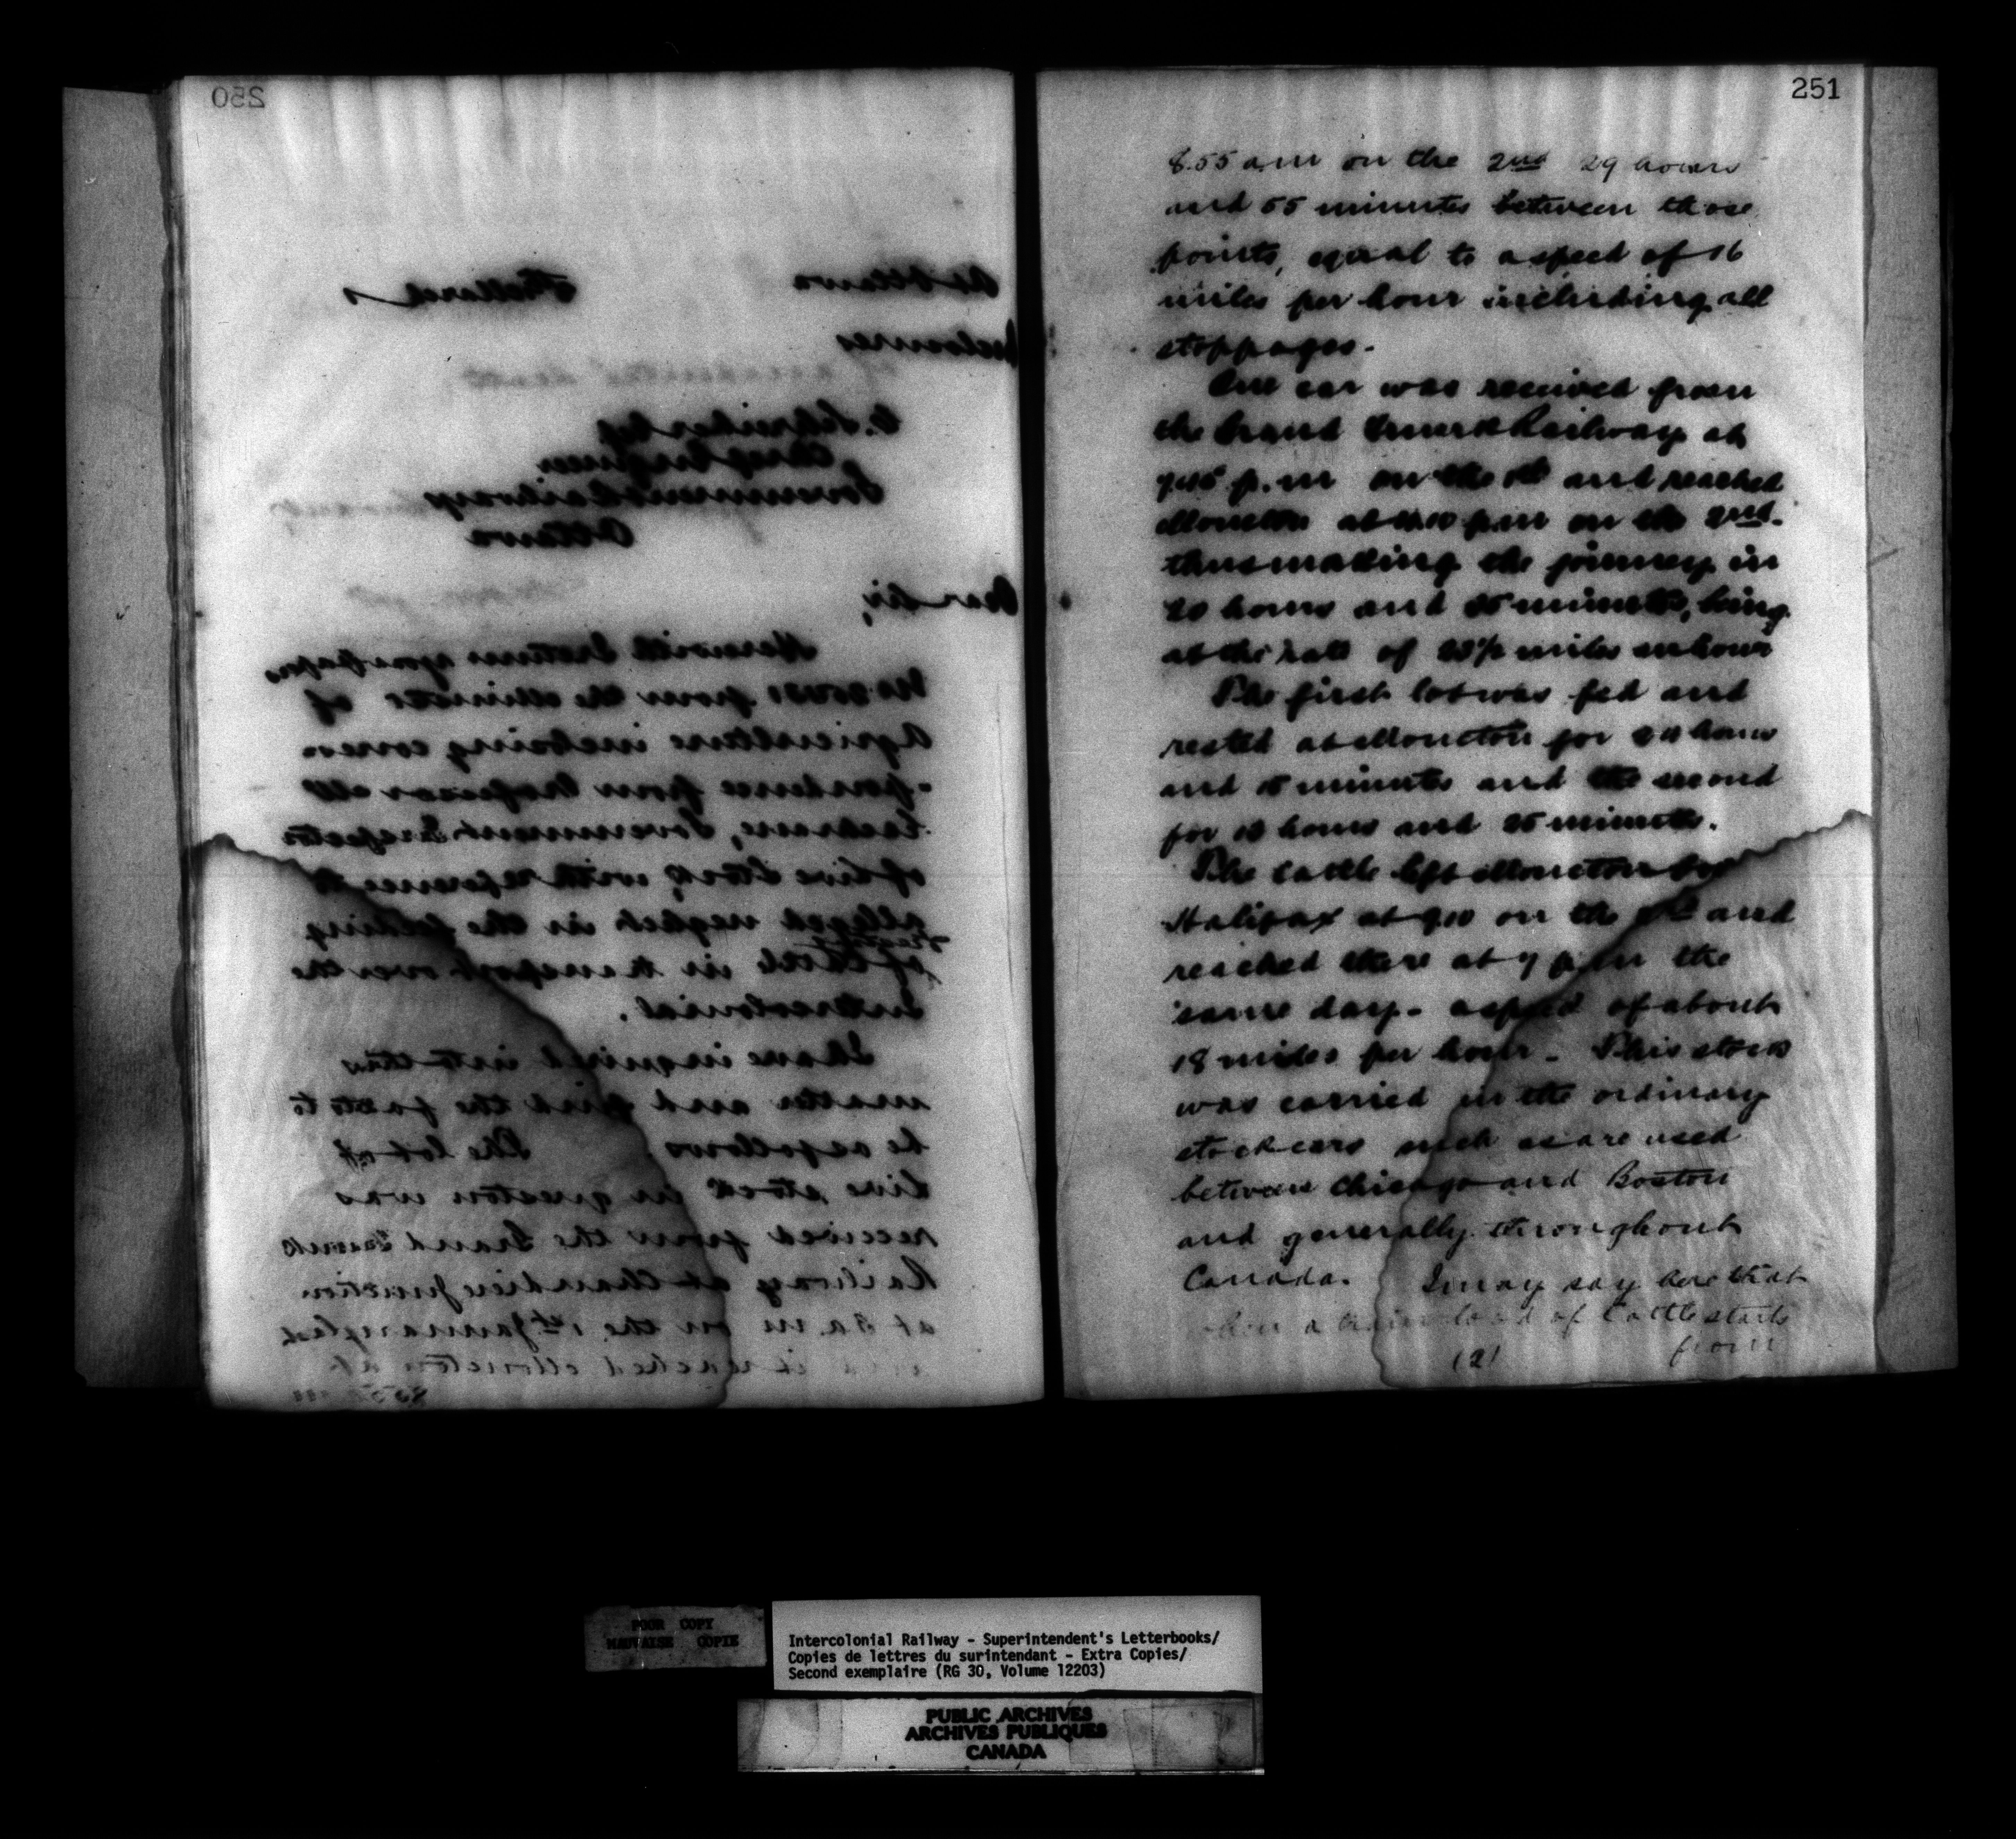 250
At Ottawa
Inclosures
C. Schreiber Esq
Chief Engineer
Government Railways
Ottawa
Dear Sir,
Herewith I return your papers
from the Minister of
Agriculture inclosing corres
-pondence from Professor
Government Inspector
of Live Stock, with reference to
alleged neglect in the feeding
of Cattle in transport over the
Intercolonial.
I have inquired into this
matter and find the facts to
be as follows. The lot of
live stock in question was
received from the Grand Trunk
Railway at Chaudiere Junction
at 3 a.m on the 1st January last
reached Moncton at
8.55
251
8.55 a.m on the 2nd 29 hours
and 55 minutes between those
points, equal to a speed of 16
miles per hour including all
stoppages.
One car was received from
the Grand Trunk Railway at
p.m on the 1st and reached
Moncton at p.m on the 2nd.
thus making the journey in
20 hours and minutes, being
at the rate of miles an hour
The first lot was fed and
rested at Moncton for hours
and minutes and the second
for hours and minutes.
The cattle left Moncton for
Halifax at on the and
reached there at 7 p.m the
same day - a speed of about
18 miles per hour - This stock
was carried in the ordinary
stock cars such as are used
between Chicago and Boston
and generally throughout
Canada. I may say here that
when a train load of Cattle starts
(2) from
POOR COPY
MAUVAISE COPIE
Intercolonial Railway - Superintendent's Letterbooks/
Copies de lettres du surintendant - Extra Copies/
Second exemplaire (RG 30, Volume 12203)
PUBLIC ARCHIVES
ARCHIVES PUBLIQUES
CANADA